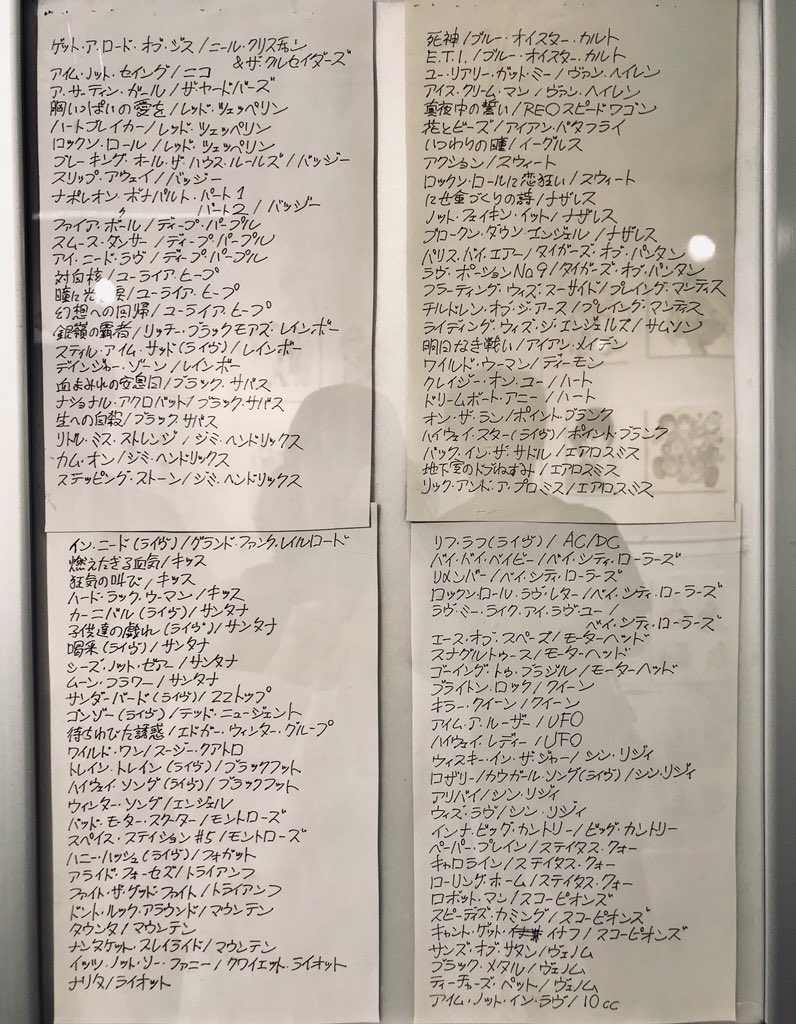 ゲット・ア・ロード・オブ・ジス/ニール・クリスチャン
&ザ・クルセイダーズ
アイム・ノット・セイング/ニコ
ア・サーティン・ガール/ザ・ヤードバーズ
胸いっぱいの愛を/レッド・ツェッペリン
ハートブレイカー/レッド・ツェッペリン
ロックン・ロール/レッド・ツェッペリン
ブレーキング・オール・ザ・ハウス・ルールズ/バッジー
スリップ・アウェイ/バッジー
ナポレオン・ボナパルト・パート1
〃 パート2/バッジー
ファイア・ボール/ディープ・パープル
スムース・ダンサー/ディープ・パープル
アイ・ニード・ラヴ/ディープ・パープル
対自核/ユーライア・ヒープ
瞳に光 涙/ユーライア・ヒープ
幻想への回帰/ユーライア・ヒープ
銀嶺の覇者/リッチー・ブラックモアズ・レインボー
スティル・アイム・サッド(ライヴ)/レインボー
デインジャー・ゾーン/レインボー
血まみれの安息日/ブラック・サバス
ナショナル・アクロバット/ブラック・サバス
生への自殺/ブラック・サバス
リトル・ミス・ストレンジ/ジミ・ヘンドリックス
カム・オン/ジミ・ヘンドリックス
ステッピング・ストーン/ジミ・ヘンドリックス
イン・ニード(ライヴ)/グランド・ファンク・レイルロード
燃えたぎる血気/キッス
狂気の叫び/キッス
ハード・ラック・ウーマン/キッス
カーニバル(ライヴ)/サンタナ
子供達の戯れ(ライヴ)/サンタナ
喝采(ライヴ)/サンタナ
シーズ・ノット・ゼアー/サンタナ
ムーン・フラワー/サンタナ
サンダーバード(ライヴ)/ZZトップ
ゴンゾー(ライヴ)/テッド・ニュージェント
待ちわびた誘惑/エドガー・ウィンター・グループ
ワイルド・ワン/スージー・クアトロ
トレイン・トレイン(ライヴ)/ブラックフット
ハイウェイ・ソング(ライヴ)/ブラックフット
ウィンター・ソング/エンジェル
バッド・モーター・スクーター/モントローズ
スペイス・ステイション#5/モントローズ
ハニー・ハッシュ(ライヴ)/フォガット
アライド・フォーセズ/トライアンフ
ファイト・ザ・グッド・ファイト/トライアンフ
ドント・ルック・アラウンド/マウンテン
タウンタ/マウンテン
ナンタケット・スレイライド/マウンテン
イッツ・ノット・ソー・ファニー/クワイエット・ライオット
ナリタ/ライオット
死神/ブルー・オイスター・カルト
E.T.I./ブルー・オイスター・カルト
ユー・リアリー・ガット・ミー/ヴァン・ヘイレン
アイス・クリーム・マン/ヴァン・ヘイレン
真夜中の誓い/REOスピードワゴン
花とビーズ/アイアン・バタフライ
いつわりの瞳/イーグルス
アクション/スウィート
ロックン・ロールに恋狂い/スウィート
にせ金づくりの詩/ナザレス
ノット・フェイキン・イット/ナザレス
ブロークン・ダウン・エンジェル/ナザレス
パリス・バイ・エアー/タイガーズ・オブ・パンタン
ラヴ・ポーションNo.9/タイガーズ・オブ・パンタン
フラーティング・ウィズ・スーサイド/プレイング・マンティス
チルドレン・オブ・ジ・アース/プレイング・マンティス
ライディング・ウィズ・ジ・エンジェルズ/サムソン
明日なき戦い/アイアン・メイデン
ワイルド・ウーマン/ディーモン
クレイジー・オン・ユー/ハート
ドリームボート・アニー/ハート
オン・ザ・ラン/ポイント・ブランク
ハイウェイ・スター(ライヴ)/ポイント・ブランク
バック・イン・ザ・サドル/エアロスミス
地下室のドブねずみ/エアロスミス
リック・アンド・ア・プロミス/エアロスミス
リフ・ラフ(ライヴ)/AC/DC
バイ・バイ・ベイビー/ベイ・シティ・ローラーズ
リメンバー/ベイ・シティ・ローラーズ
ロックン・ロール・ラヴ・レター/ベイ・シティ・ローラーズ
ラヴ・ミー・ライク・アイ・ラヴ・ユー/
ベイ・シティ・ローラーズ
エース・オブ・スペーズ/モーターヘッド
スナグルトゥース/モーターヘッド
ゴーイング・トゥ・ブラジル/モーターヘッド
ブライトン・ロック/クイーン
キラー・クイーン/クイーン
アイム・ア・ルーザー/UFO
ハイウェイ・レディー/UFO
ウィスキー・イン・ザ・ジャー/シン・リジィ
ロザリー/カウガール・ソング(ライヴ)/シン・リジィ
アリバイ/シン・リジィ
ウィズ・ラヴ/シン・リジィ
インナ・ビッグ・カントリー/ビッグ・カントリー
ペーパー・プレイン/ステイタス・クォー
キャロライン/ステイタス・クォー
ローリング・ホーム/ステイタス・クォー
ロボット・マン/スコーピオンズ
スピーディズ・カミング/スコーピオンズ
キャント・ゲット・イナフ/スコーピオンズ
サンズ・オブ・サタン/ヴェノム
ブラック・メタル/ヴェノム
ティーチャーズ・ペット/ヴェノム
アイム・ノット・イン・ラヴ/10cc